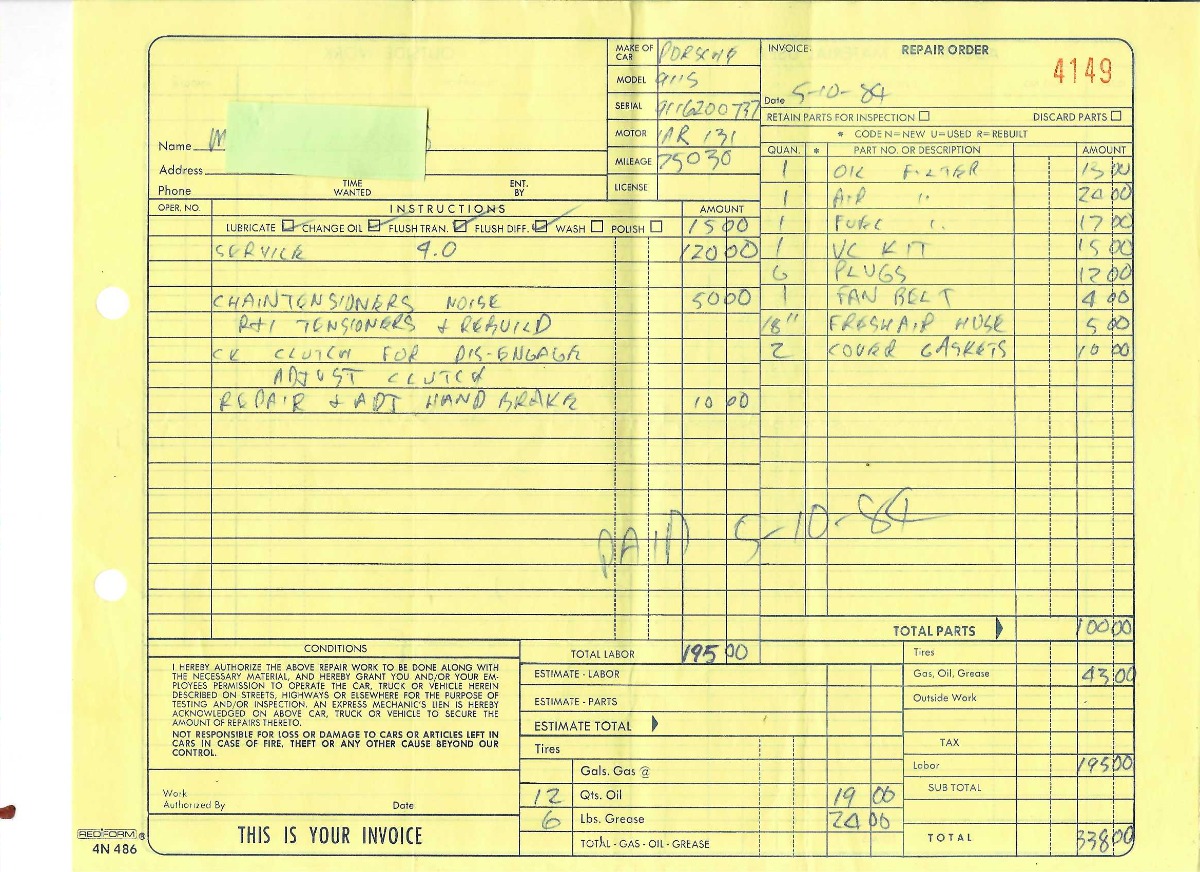 MAKE OF CAR PORSCHE
INVOICE: REPAIR ORDER
4149
MODEL 911S
Date 5-10-84
SERIAL 9116200737
RETAIN PARTS FOR INSPECTION DISCARD PARTS
MOTOR AR 131
* CODE N=NEW U=USED R=REBUILT
Name M
MILEAGE 75030
Address
Phone TIME WANTED ENT. BY
LICENSE
QUAN. * PART NO. OR DESCRIPTION AMOUNT
1 OIL FILTER 13 00
1 AIR " 24 00
1 FUEL " 17 00
1 VC KIT 15 00
6 PLUGS 12 00
1 FAN BELT 4 00
18" FRESHAIR HOSE 5 00
2 COVER GASKETS 10 00
TOTAL PARTS 100 00
OPER. NO. INSTRUCTIONS AMOUNT
LUBRICATE CHANGE OIL FLUSH TRAN. FLUSH DIFF. WASH POLISH 15 00
SERVICE 4.0 120 00
CHAINTENSIONERS NOISE 50 00
R+I TENSIONERS + REBUILD
CK CLUTCH FOR DIS-ENGAGE
ADJUST CLUTCH
REPAIR + ADJ HAND BRAKE 10 00
PAID 5-10-84
TOTAL LABOR 195 00
CONDITIONS
I HEREBY AUTHORIZE THE ABOVE REPAIR WORK TO BE DONE ALONG WITH
THE NECESSARY MATERIAL, AND HEREBY GRANT YOU AND/OR YOUR EM-
PLOYEES PERMISSION TO OPERATE THE CAR, TRUCK OR VEHICLE HEREIN
DESCRIBED ON STREETS, HIGHWAYS OR ELSEWHERE FOR THE PURPOSE OF
TESTING AND/OR INSPECTION. AN EXPRESS MECHANIC'S LIEN IS HEREBY
ACKNOWLEDGED ON ABOVE CAR, TRUCK OR VEHICLE TO SECURE THE
AMOUNT OF REPAIRS THERETO.
NOT RESPONSIBLE FOR LOSS OR DAMAGE TO CARS OR ARTICLES LEFT IN
CARS IN CASE OF FIRE, THEFT OR ANY OTHER CAUSE BEYOND OUR
CONTROL.
Work Authorized By Date
THIS IS YOUR INVOICE
REDIFORM ®
4N 486
ESTIMATE - LABOR
ESTIMATE - PARTS
ESTIMATE TOTAL
Tires
Gals. Gas @
12 Qts. Oil 19 00
6 Lbs. Grease 24 00
TOTAL - GAS - OIL - GREASE
Tires
Gas, Oil, Grease 43 00
Outside Work
TAX
Labor 195 00
SUB TOTAL
TOTAL 338 00